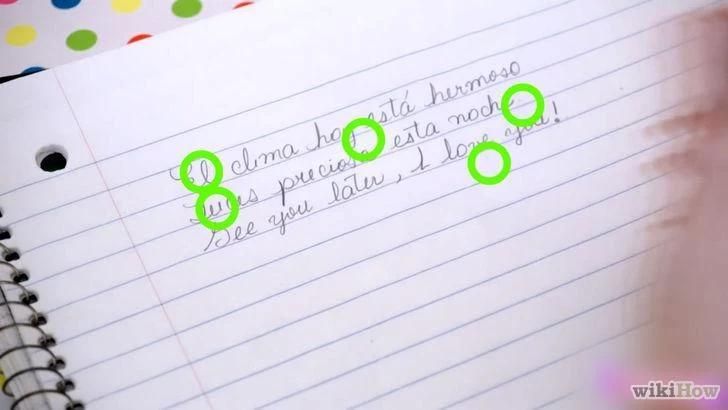 El clima hoy está hermoso
Luces preciosa esta noche.
See you later, I love you!
wikiHow